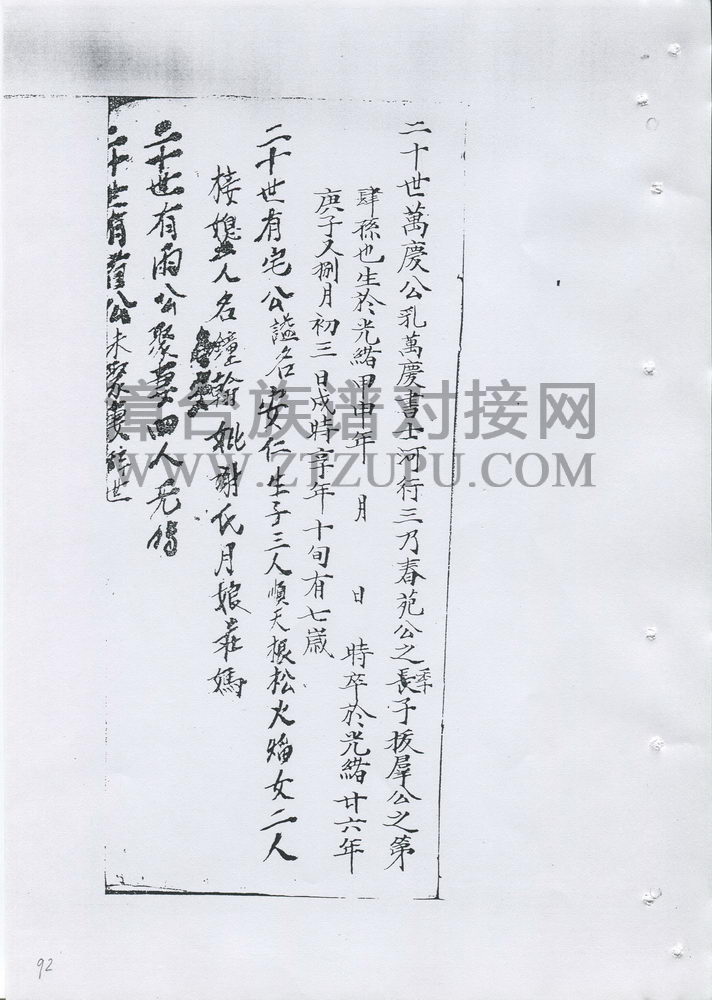 二十世萬慶公乳萬慶書士河行三乃春苑公之長季子拔羣公之第
肆孫也生於光緒甲申年 月 日 時卒於光緒廿六年
庚子又捌月初三日戌時享年十旬有七歲
二十世有宅公諡名安仁生子三人順天根松火焰女二人
人名鐘翰妣謝氏月娘莊媽
二十世有雨公聚妻四人
二十世有公未聚妻世
章台族谱对接网
WWW.ZTZUPU.COM
92